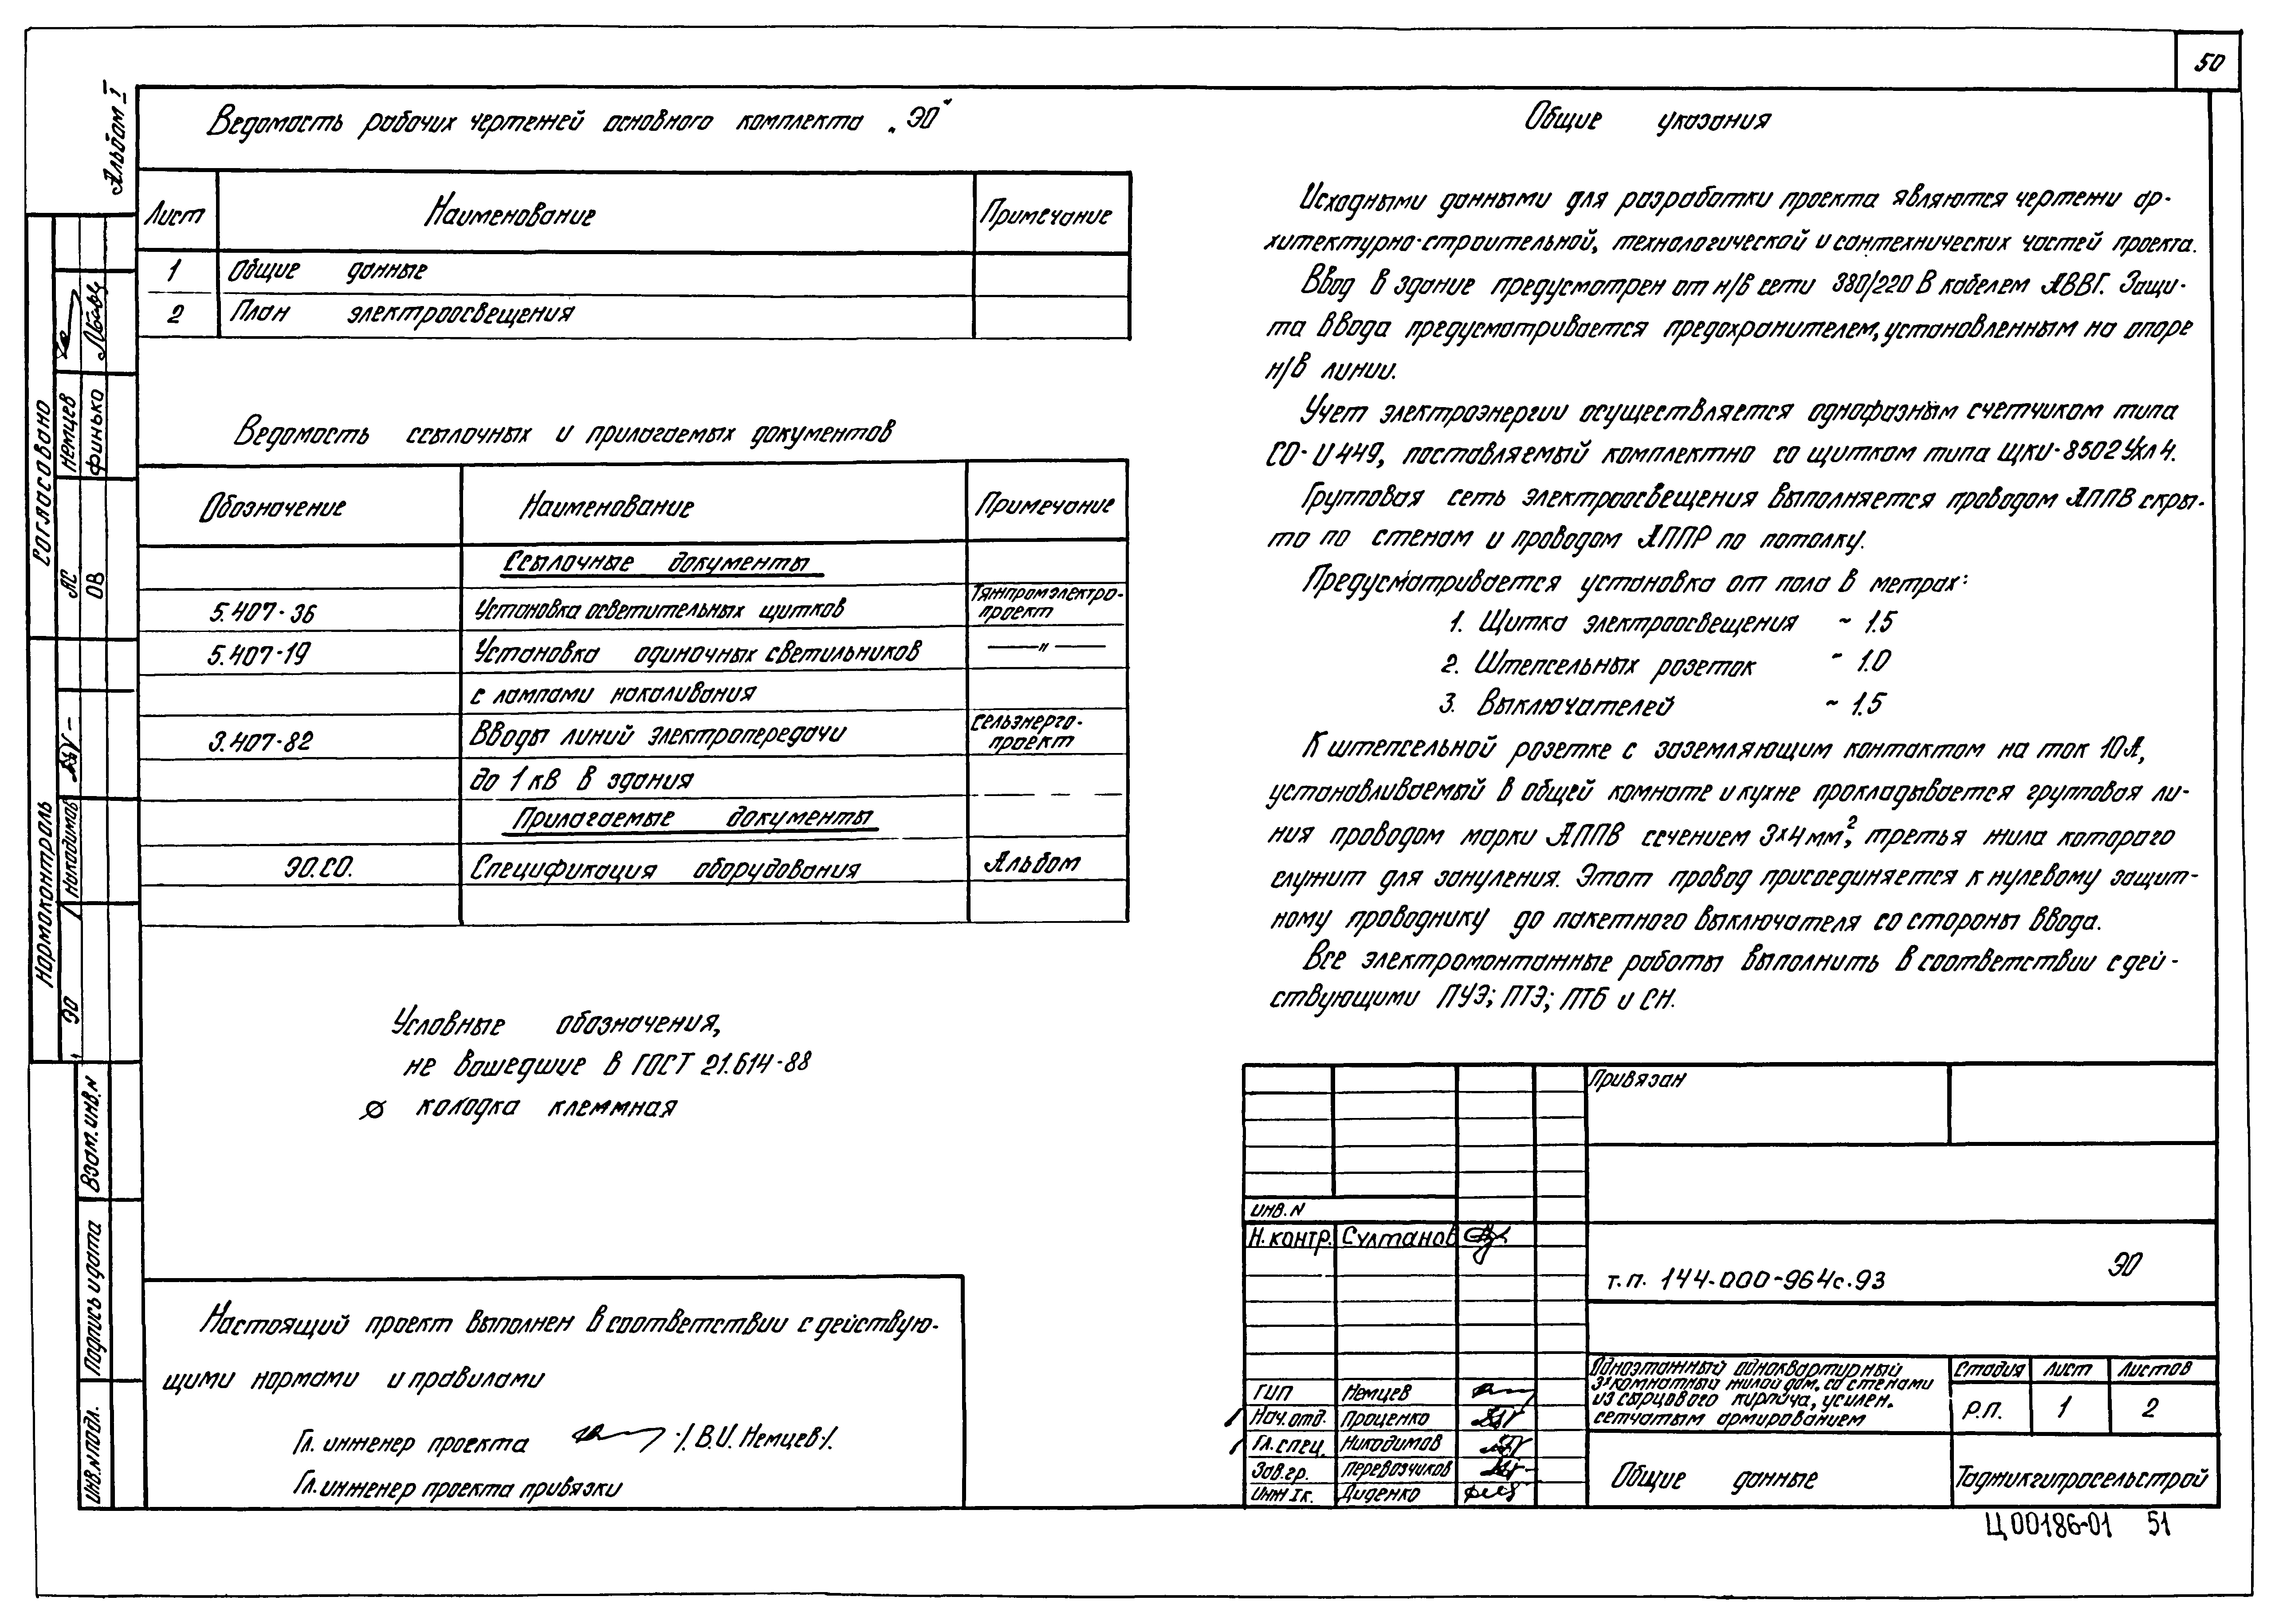 50
Альбом I
Ведомость рабочих чертежей основного комплекта „ЭО"
Лист Наименование Примечание
1 Общие данные
2 План электроосвещения
Ведомость ссылочных и прилагаемых документов
Обозначение Наименование Примечание
Ссылочные документы
5.407-36 Установка осветительных щитков Тяжпромэлектро-
проект
5.407-19 Установка одиночных светильников —"—
с лампами накаливания
3.407-82 Вводы линий электропередачи Сельэнерго-
проект
до 1 кВ в здания
Прилагаемые документы
ЭО.СО. Спецификация оборудования Альбом
Условные обозначения,
не вошедшие в ГОСТ 21.614-88
ø колодка клеммная
Настоящий проект выполнен в соответствии с действую-
щими нормами и правилами
Гл. инженер проекта /В.И. Немцев/.
Гл. инженер проекта привязки
Общие указания
Исходными данными для разработки проекта являются чертежи ар-
хитектурно-строительной, технологической и сантехнических частей проекта.
Ввод в здание предусмотрен от н/в сети 380/220 В кабелем АВВГ. Защи-
та ввода предусматривается предохранителем, установленным на опоре
н/в линии.
Учет электроэнергии осуществляется однофазным счетчиком типа
СО-И449, поставляемый комплектно со щитком типа ЩКИ-8502УХЛ4.
Групповая сеть электроосвещения выполняется проводом АППВ скры-
то по стенам и проводом АППР по потолку.
Предусматривается установка от пола в метрах:
1. Щитка электроосвещения ~ 1.5
2. Штепсельных розеток - 1.0
3. Выключателей ~ 1.5
К штепсельной розетке с заземляющим контактом на ток 10А,
устанавливаемый в общей комнате и кухне прокладывается групповая ли-
ния проводом марки АППВ сечением 3х4 мм², третья жила которого
служит для зануления. Этот провод присоединяется к нулевому защит-
ному проводнику до пакетного выключателя со стороны ввода.
Все электромонтажные работы выполнить в соответствии с дей-
ствующими ПУЭ; ПТЭ; ПТБ и СН.
Привязан
инв. N
Н. контр. Султанов
т.п. 144-000-964с.93 ЭО
ГИП Немцев
Нач. отд. Проценко
Гл. спец. Никодимов
Зав. гр. Перевозчиков
Инж Iк. Диденко
Одноэтажный одноквартирный
3х комнатный жилой дом, со стенами
из сырцового кирпича, усилен.
сетчатым армированием
Стадия Лист Листов
Р.П. 1 2
Общие данные
Таджикгипросельстрой
Ц00186-01 51
Согласовано
АС Немцев
ОВ Финько
Нормоконтроль
ЭО Никодимов
Взам. инв. N
Подпись и дата
Инв. N подл.